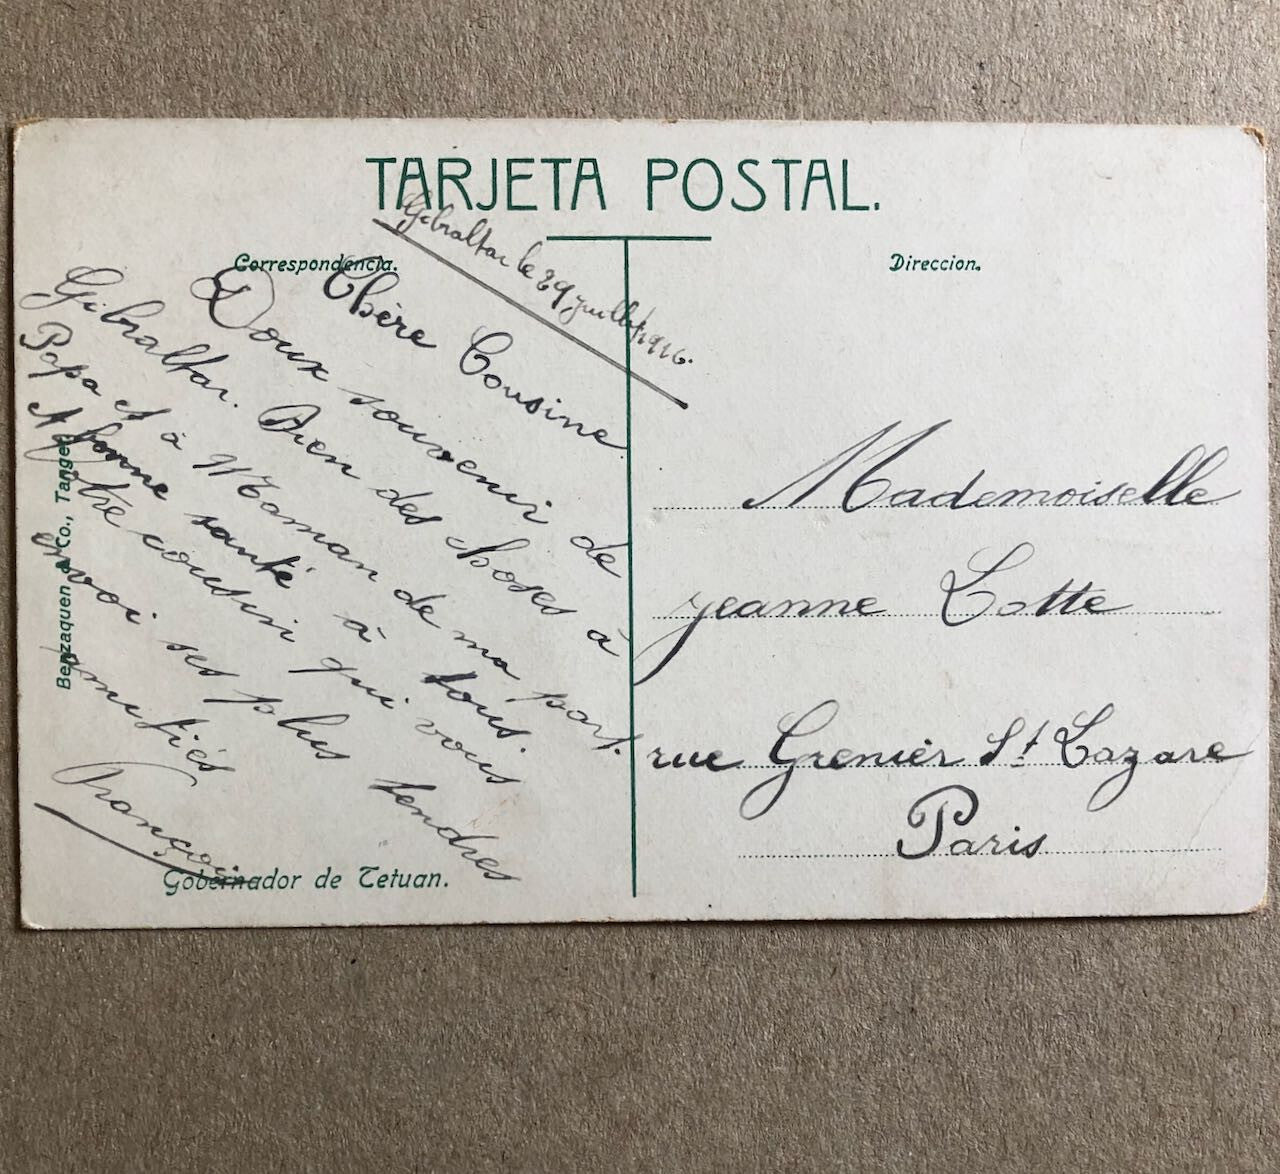 TARJETA POSTAL.
Correspondencia.
Direccion.
Gibraltar le 29 juillet 1916.
Chère Cousine
Doux souvenir de
Gibraltar. Bien des choses à
Papa et à Maman de ma part.
A bonne santé à tous.
Votre cousin qui vous
envoi ses plus tendres
amitiés
François
Mademoiselle
Jeanne Lotte
rue Grenier St Lazare
Paris
Benzaquen & Co., Tanger
Gobernador de Tetuan.